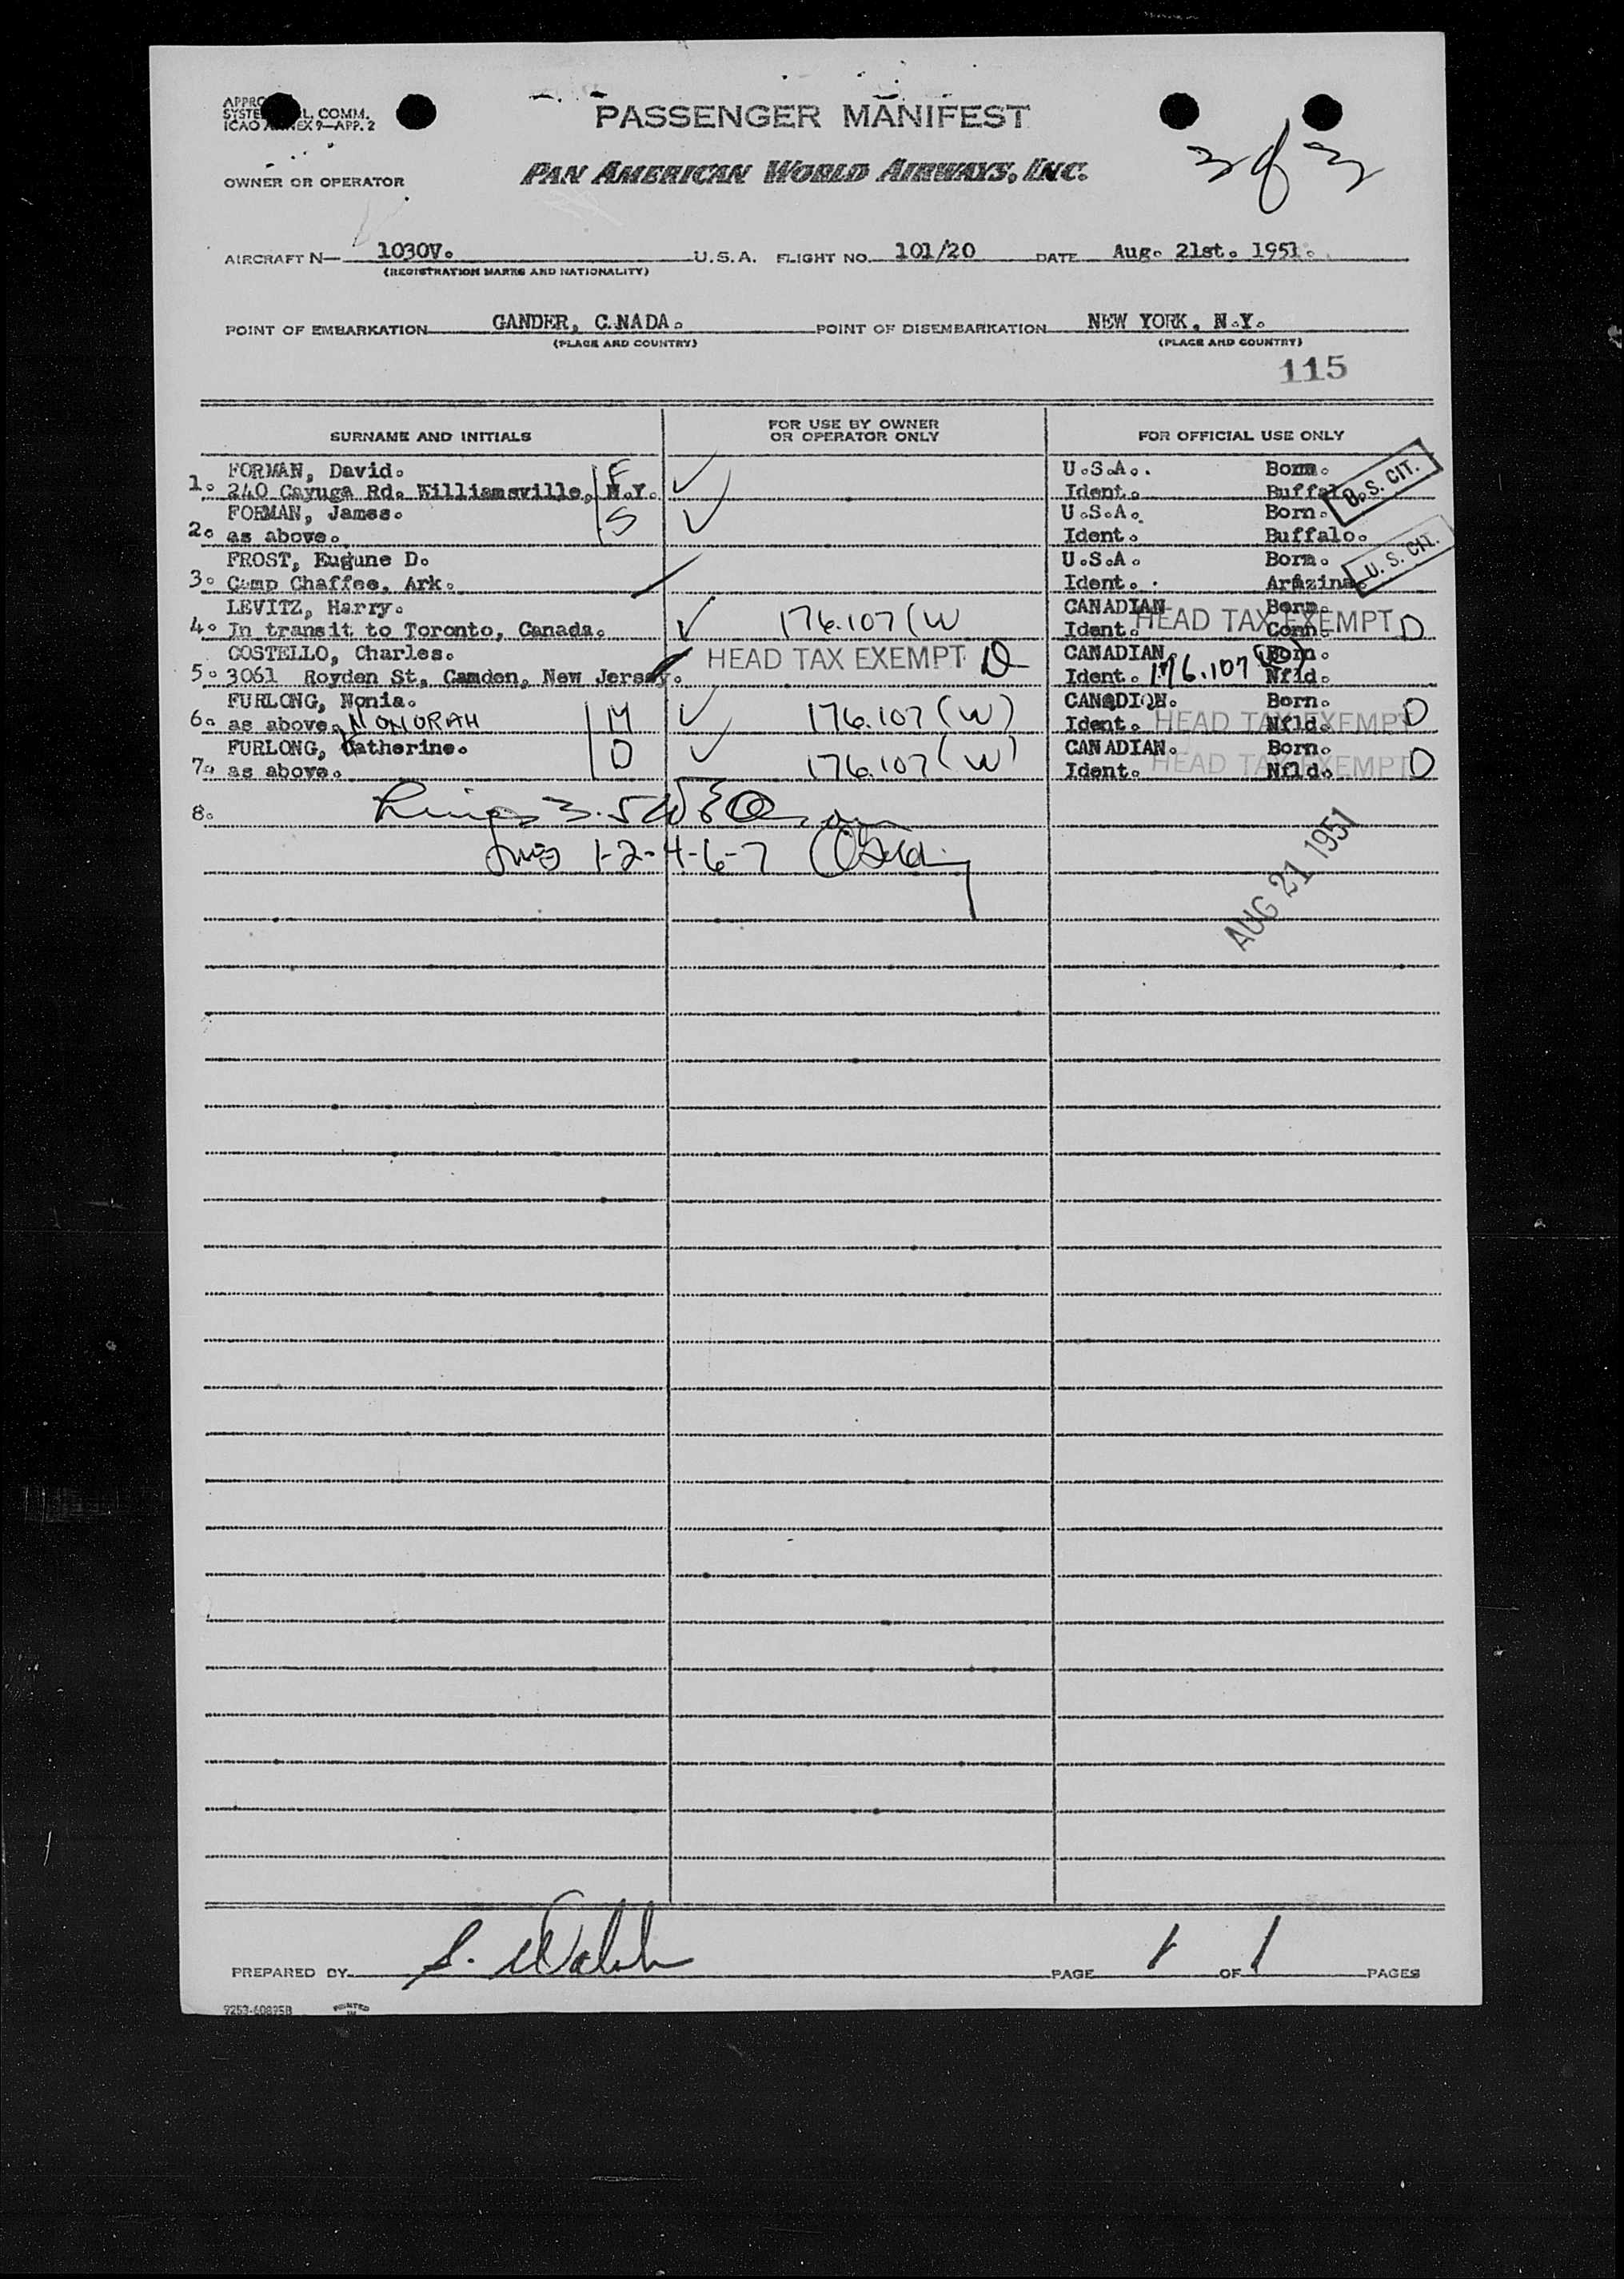 PASSENGER MANIFEST
ICAO 9—APP. 2
OWNER OR OPERATOR PAN AMERICAN WORLD AIRWAYS, INC.
3 of 3
AIRCRAFT N— 1030V. U.S.A. FLIGHT NO. 101/20 DATE Aug. 21st. 1951.
(REGISTRATION MARKS AND NATIONALITY)
POINT OF EMBARKATION GANDER, C.NADA. POINT OF DISEMBARKATION NEW YORK, N.Y.
(PLACE AND COUNTRY) (PLACE AND COUNTRY)
115
SURNAME AND INITIALS FOR USE BY OWNER OR OPERATOR ONLY FOR OFFICIAL USE ONLY
FORMAN, David. F U.S.A.. Born.
1. 240 Cayuga Rd. Williamsville, N.Y. Ident. Buffalo. U.S. CIT.
FORMAN, James. S U.S.A. Born.
2. as above. Ident. Buffalo.
FROST, Eugune D. U.S.A. Born. U.S. CIT.
3. Camp Chaffee, Ark. Ident. .
LEVITZ, Harry. CANADIAN Born.
4. In transit to Toronto, Canada. 176.107 (W Ident. Conn. HEAD TAX EXEMPT D
COSTELLO, Charles. HEAD TAX EXEMPT D CANADIAN. Born.
5. 3061 Royden St, Camden, New Jersey. Ident. 176.107 Nfld.
FURLONG, Nonia. CANADION. Born.
6. as above. NONORAH M 176.107 (W) Ident. Nfld. HEAD TAX EXEMPT D
FURLONG, Katherine. CANADIAN. Born.
7. as above. D 176.107 (W) Ident. Nfld. HEAD TAX EXEMPT D
8. Lines 3.5
1-2-4-6-7
AUG 21 1951
PREPARED BY S. Walsh PAGE 1 OF 1 PAGES
9253-60895B PRINTED